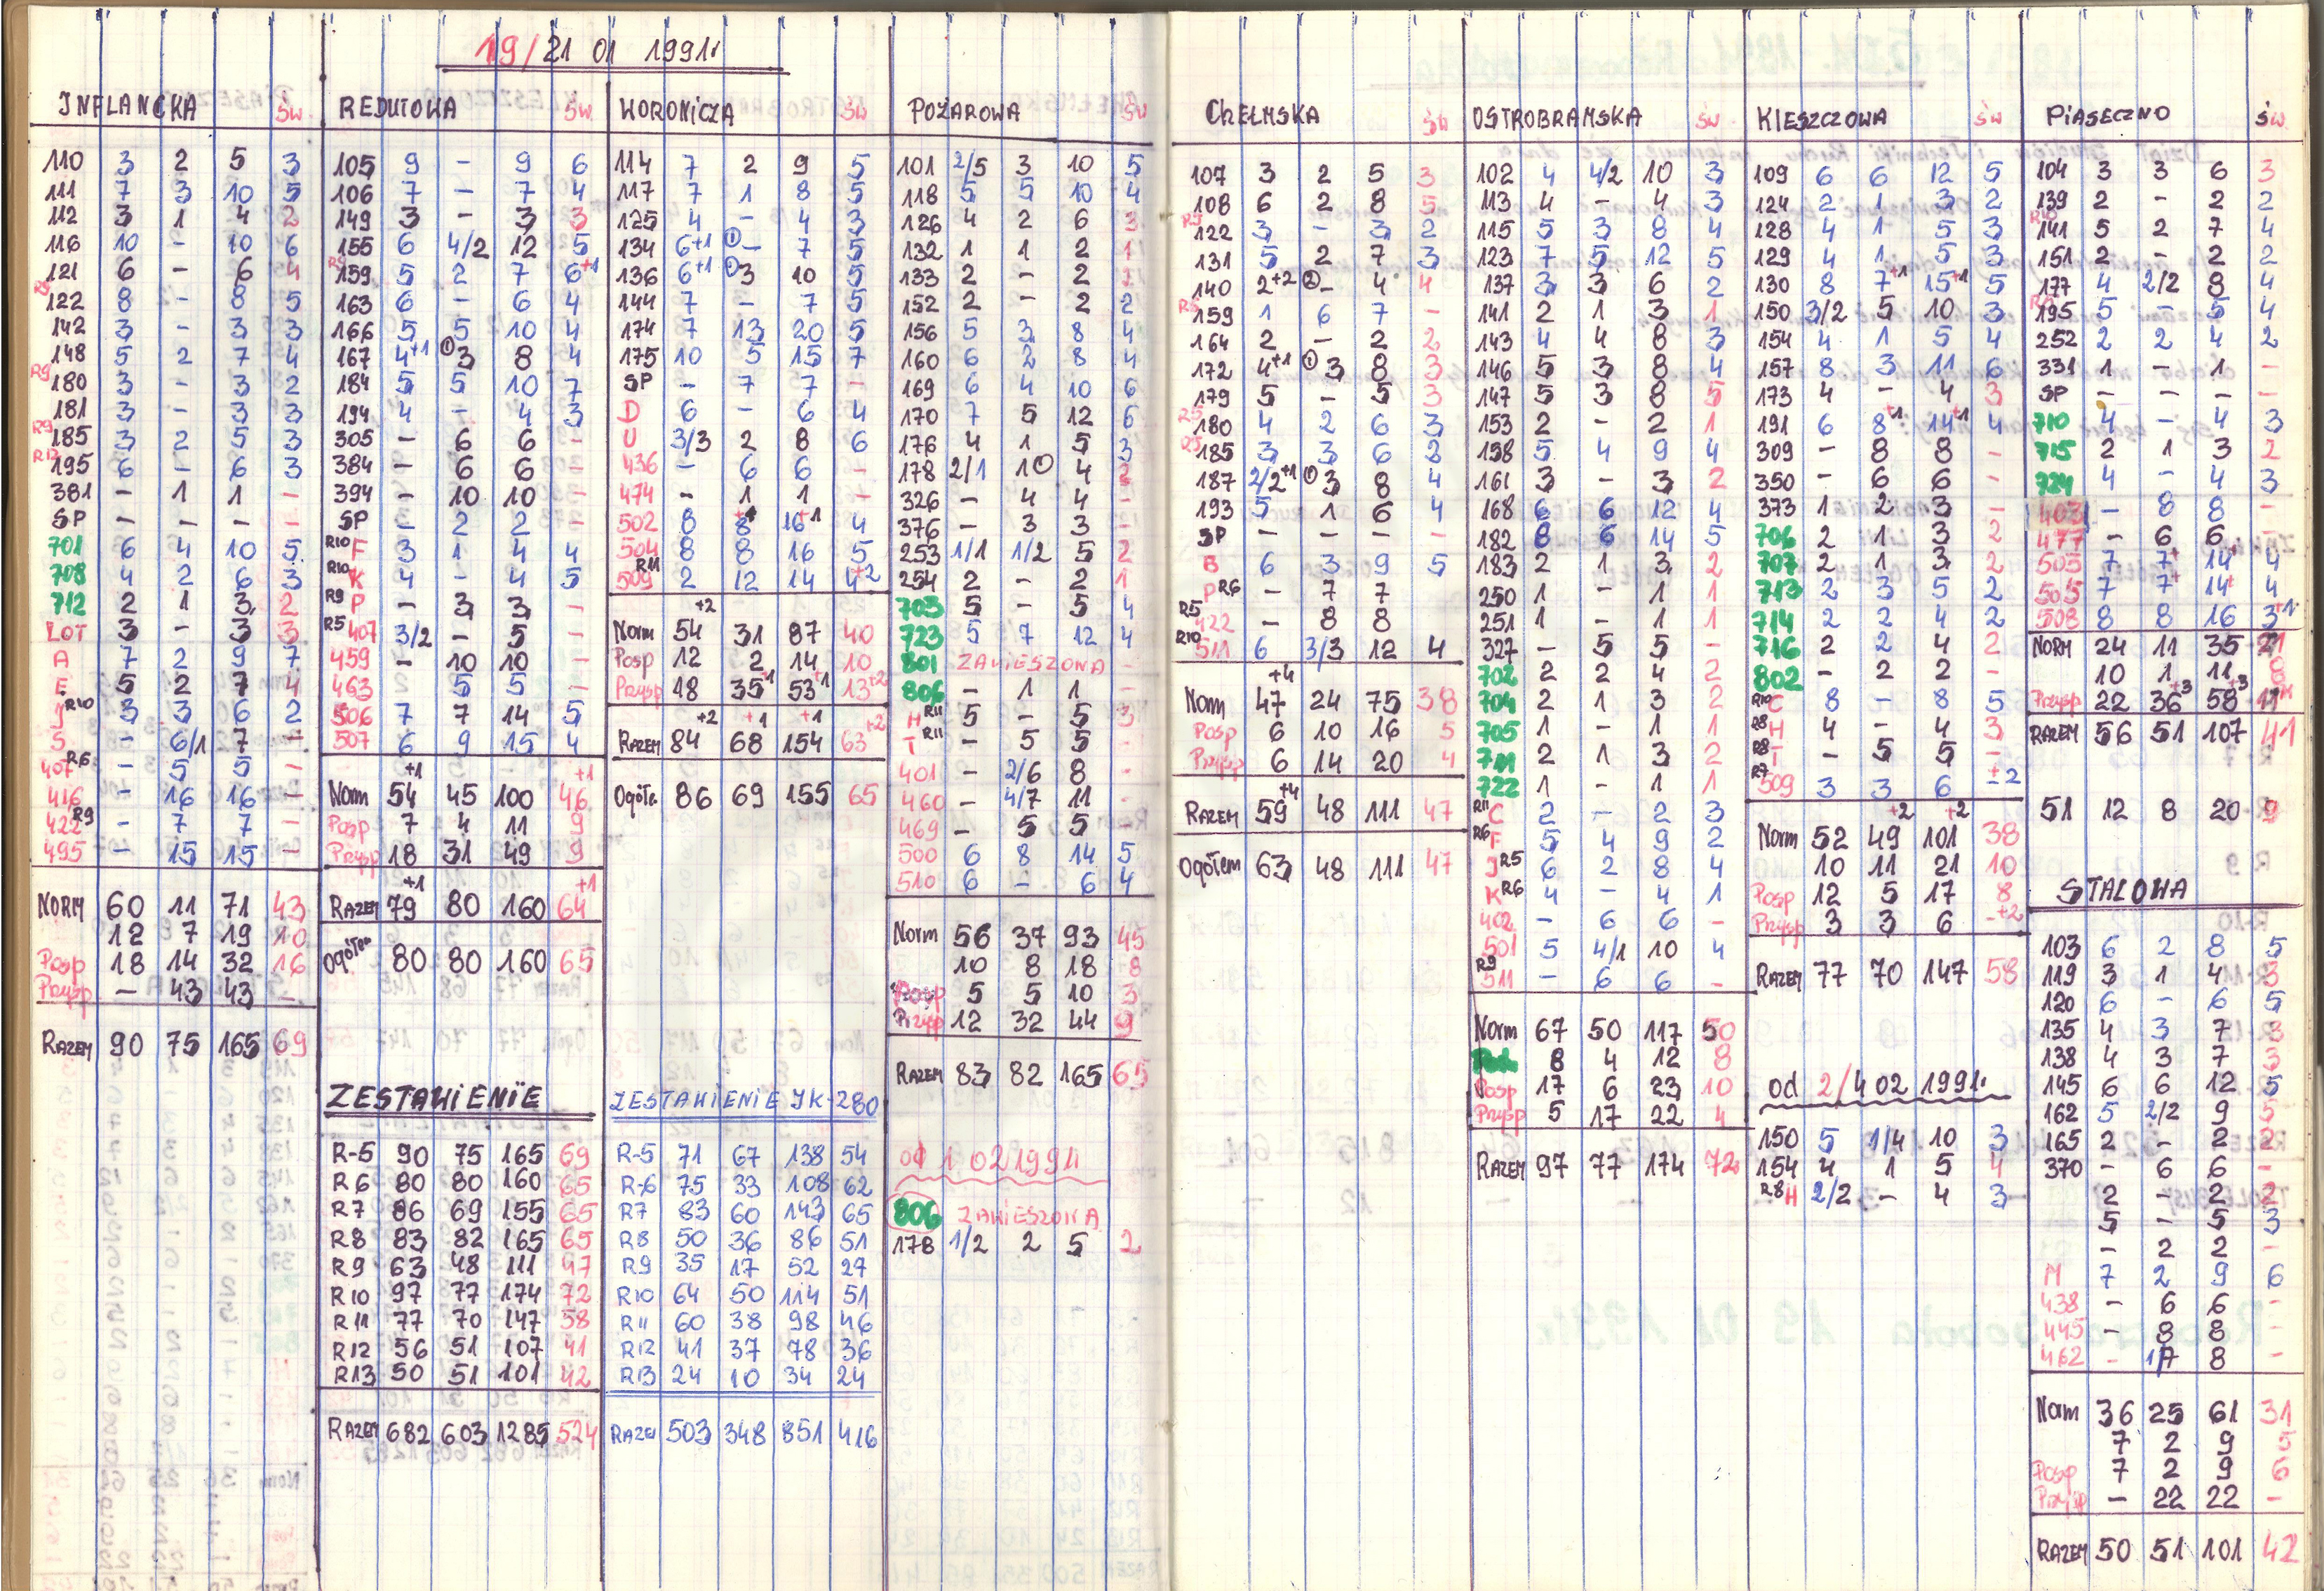 19/21 01 1991r
INFLANCKA ŚW
110 3 2 5 3
111 7 3 10 5
112 3 1 4 2
116 10 - 10 6
121 6 - 6 4
122 8 - 8 5
142 3 - 3 3
148 5 2 7 4
R9 180 3 - 3 2
181 3 - 3 3
R9 185 3 2 5 3
R12 195 6 - 6 3
381 - 1 1 -
SP - - - -
701 6 4 10 5
708 4 2 6 3
712 2 1 3 2
LOT 3 - 3 3
A 7 2 9 7
E 5 2 7 4
J R10 3 3 6 2
S - 6/1 7 -
407 R6 - 5 5 -
416 - 16 16 -
422 R9 - 7 7 -
495 - 15 15 -
NORM 60 11 71 43
12 7 19 10
Posp 18 14 32 16
Przysp - 43 43 -
RAZEM 90 75 165 69
REDUTOWA ŚW
105 9 - 9 6
106 7 - 7 4
149 3 - 3 3
155 6 4/2 12 5
R9 159 5 2 7 6+1
163 6 - 6 4
166 5 5 10 4
167 4+1 ①3 8 4
184 5 5 10 7
194 4 - 4 3
305 - 6 6 -
384 - 6 6 -
394 - 10 10 -
SP - 2 2 -
R10 F 3 1 4 4
R10 K 4 - 4 5
R9 P - 3 3 -
R5 407 3/2 - 5 -
459 - 10 10 -
463 - 5 5 -
506 7 7 14 5
507 6 9 15 4
+1 +1
Norm 54 45 100 46
Posp 7 4 11 9
Przysp 18 31 49 9
+1 +1
RAZEM 79 80 160 64
Ogółem 80 80 160 65
ZESTAWIENIE
R-5 90 75 165 69
R6 80 80 160 65
R7 86 69 155 65
R8 83 82 165 65
R9 63 48 111 47
R10 97 77 174 72
R11 77 70 147 58
R12 56 51 107 41
R13 50 51 101 42
RAZEM 682 603 1285 524
WORONICZA ŚW
114 7 2 9 5
117 7 1 8 5
125 4 - 4 3
134 6+1 ①- 7 5
136 6+1 ①3 10 5
144 7 - 7 5
174 7 13 20 5
175 10 5 15 7
SP - 7 7 -
D 6 - 6 4
U 3/3 2 8 6
436 - 6 6 -
474 - 1 1 -
502 8 8+1 16+1 4
504 8 8 16 5
509 R11 2 12 14 4+2
+2
Norm 54 31 87 40
Posp 12 2 14 10
Przysp 18 35+1 53+1 13+2
+2 +1 +1 +2
RAZEM 84 68 154 63
Ogółe. 86 69 155 65
ZESTAWIENIE IK-280
R-5 71 67 138 54
R-6 75 33 108 62
R7 83 60 143 65
R8 50 36 86 51
R9 35 17 52 27
R10 64 50 114 51
R11 60 38 98 46
R12 41 37 78 36
R13 24 10 34 24
RAZEM 503 348 851 416
POŻAROWA ŚW
101 2/5 3 10 5
118 5 5 10 4
126 4 2 6 3
132 1 1 2 1
133 2 - 2 2
152 2 - 2 2
156 5 3 8 4
160 6 2 8 4
169 6 4 10 6
170 7 5 12 6
176 4 1 5 3
178 2/1 1 4 2
326 - 4 4 -
376 - 3 3 -
253 1/1 1/2 5 2
254 2 - 2 1
703 5 - 5 4
723 5 7 12 4
801 ZAWIESZONA -
806 - 1 1 -
H R11 5 - 5 3
T R11 - 5 5 -
401 - 2/6 8 -
460 - 4/7 11 -
469 - 5 5 -
500 6 8 14 5
510 6 - 6 4
Norm 56 37 93 45
10 8 18 8
Posp 5 5 10 3
Przysp 12 32 44 9
RAZEM 83 82 165 65
od 1 02 1991
806 ZAWIESZONA
178 1/2 2 5 2
CHEŁMSKA ŚW
107 3 2 5 3
108 6 2 8 5
R5 122 3 - 3 2
131 5 2 7 3
140 2+2 ②- 4 4
R6 159 1 6 7 -
164 2 - 2 2
172 4+1 ①3 8 3
179 5 - 5 3
R5 180 4 2 6 3
R5 185 3 3 6 2
187 2/2+1 ①3 8 4
193 5 1 6 4
SP - - - -
B 6 3 9 5
P R6 - 7 7
R5 422 - 8 8
R10 511 6 3/3 12 4
+4
Norm 47 24 75 38
Posp 6 10 16 5
Przysp 6 14 20 4
+4
RAZEM 59 48 111 47
Ogółem 63 48 111 47
OSTROBRAMSKA ŚW
102 4 4/2 10 3
113 4 - 4 3
115 5 3 8 4
123 7 5 12 5
137 3 3 6 2
141 2 1 3 1
143 4 4 8 3
146 5 3 8 4
147 5 3 8 5
153 2 - 2 1
158 5 4 9 4
161 3 - 3 2
168 6 6 12 4
182 8 6 14 5
183 2 1 3 2
250 1 - 1 1
251 1 - 1 1
327 - 5 5 -
702 2 2 4 2
704 2 1 3 2
705 1 - 1 1
711 2 1 3 2
722 1 - 1 1
R11 C 2 - 2 3
R6 F 5 4 9 2
J R5 6 2 8 4
K R6 4 - 4 1
402 - 6 6 -
501 5 4/1 10 4
R9 511 - 6 6 -
Norm 67 50 117 50
8 4 12 8
Posp 17 6 23 10
Przysp 5 17 22 4
RAZEM 97 77 174 72
KLESZCZOWA ŚW
109 6 6 12 5
124 2 1 3 2
128 4 1 5 3
129 4 1 5 3
130 8 7+1 15+1 5
150 3/2 5 10 3
154 4 1 5 4
157 8 3 11 6
173 4 - 4 3
191 6 8+1 14+1 4
309 - 8 8 -
350 - 6 6 -
373 1 2 3 -
706 2 1 3 2
707 2 1 3 2
713 2 3 5 2
714 2 2 4 2
716 2 2 4 2
802 - 2 2 -
R10 C 8 - 8 5
R8 H 4 - 4 3
R8 T - 5 5 -
R7 509 3 3 6 -+2
+2 +2
Norm 52 49 101 38
10 11 21 10
Posp 12 5 17 8
Przysp 3 3 6 -+2
RAZEM 77 70 147 58
od 2/4 02 1991r
150 5 1/4 10 3
154 4 1 5 4
R8 H 2/2 - 4 3
PIASECZNO ŚW
104 3 3 6 3
139 2 - 2 2
R10 141 5 2 7 4
151 2 - 2 2
177 4 2/2 8 4
195 5 5 4
252 2 2 4 2
331 1 - 1 -
SP - - - -
710 4 - 4 3
715 2 1 3 2
724 4 - 4 3
403 - 8 8 -
477 - 6 6 -
503 7 7+ 14+ 4
505 7 7+ 14+ 4
508 8 8 16 3+1
NORM 24 11 35 21
10 1 11 8
Przysp 22 36+3 58+3 11
RAZEM 56 51 107 41
51 12 8 20 9
STALOWA
103 6 2 8 5
119 3 1 4 3
120 6 - 6 5
135 4 3 7 3
138 4 3 7 3
145 6 6 12 5
162 5 2/2 9 5
165 2 - 2 2
370 - 6 6 -
2 - 2 2
5 - 5 3
- 2 2 -
M 7 2 9 6
438 - 6 6 -
445 - 8 8 -
462 - 1/7 8 -
Norm 36 25 61 31
7 2 9 5
Posp 7 2 9 6
Przysp - 22 22 -
RAZEM 50 51 101 42